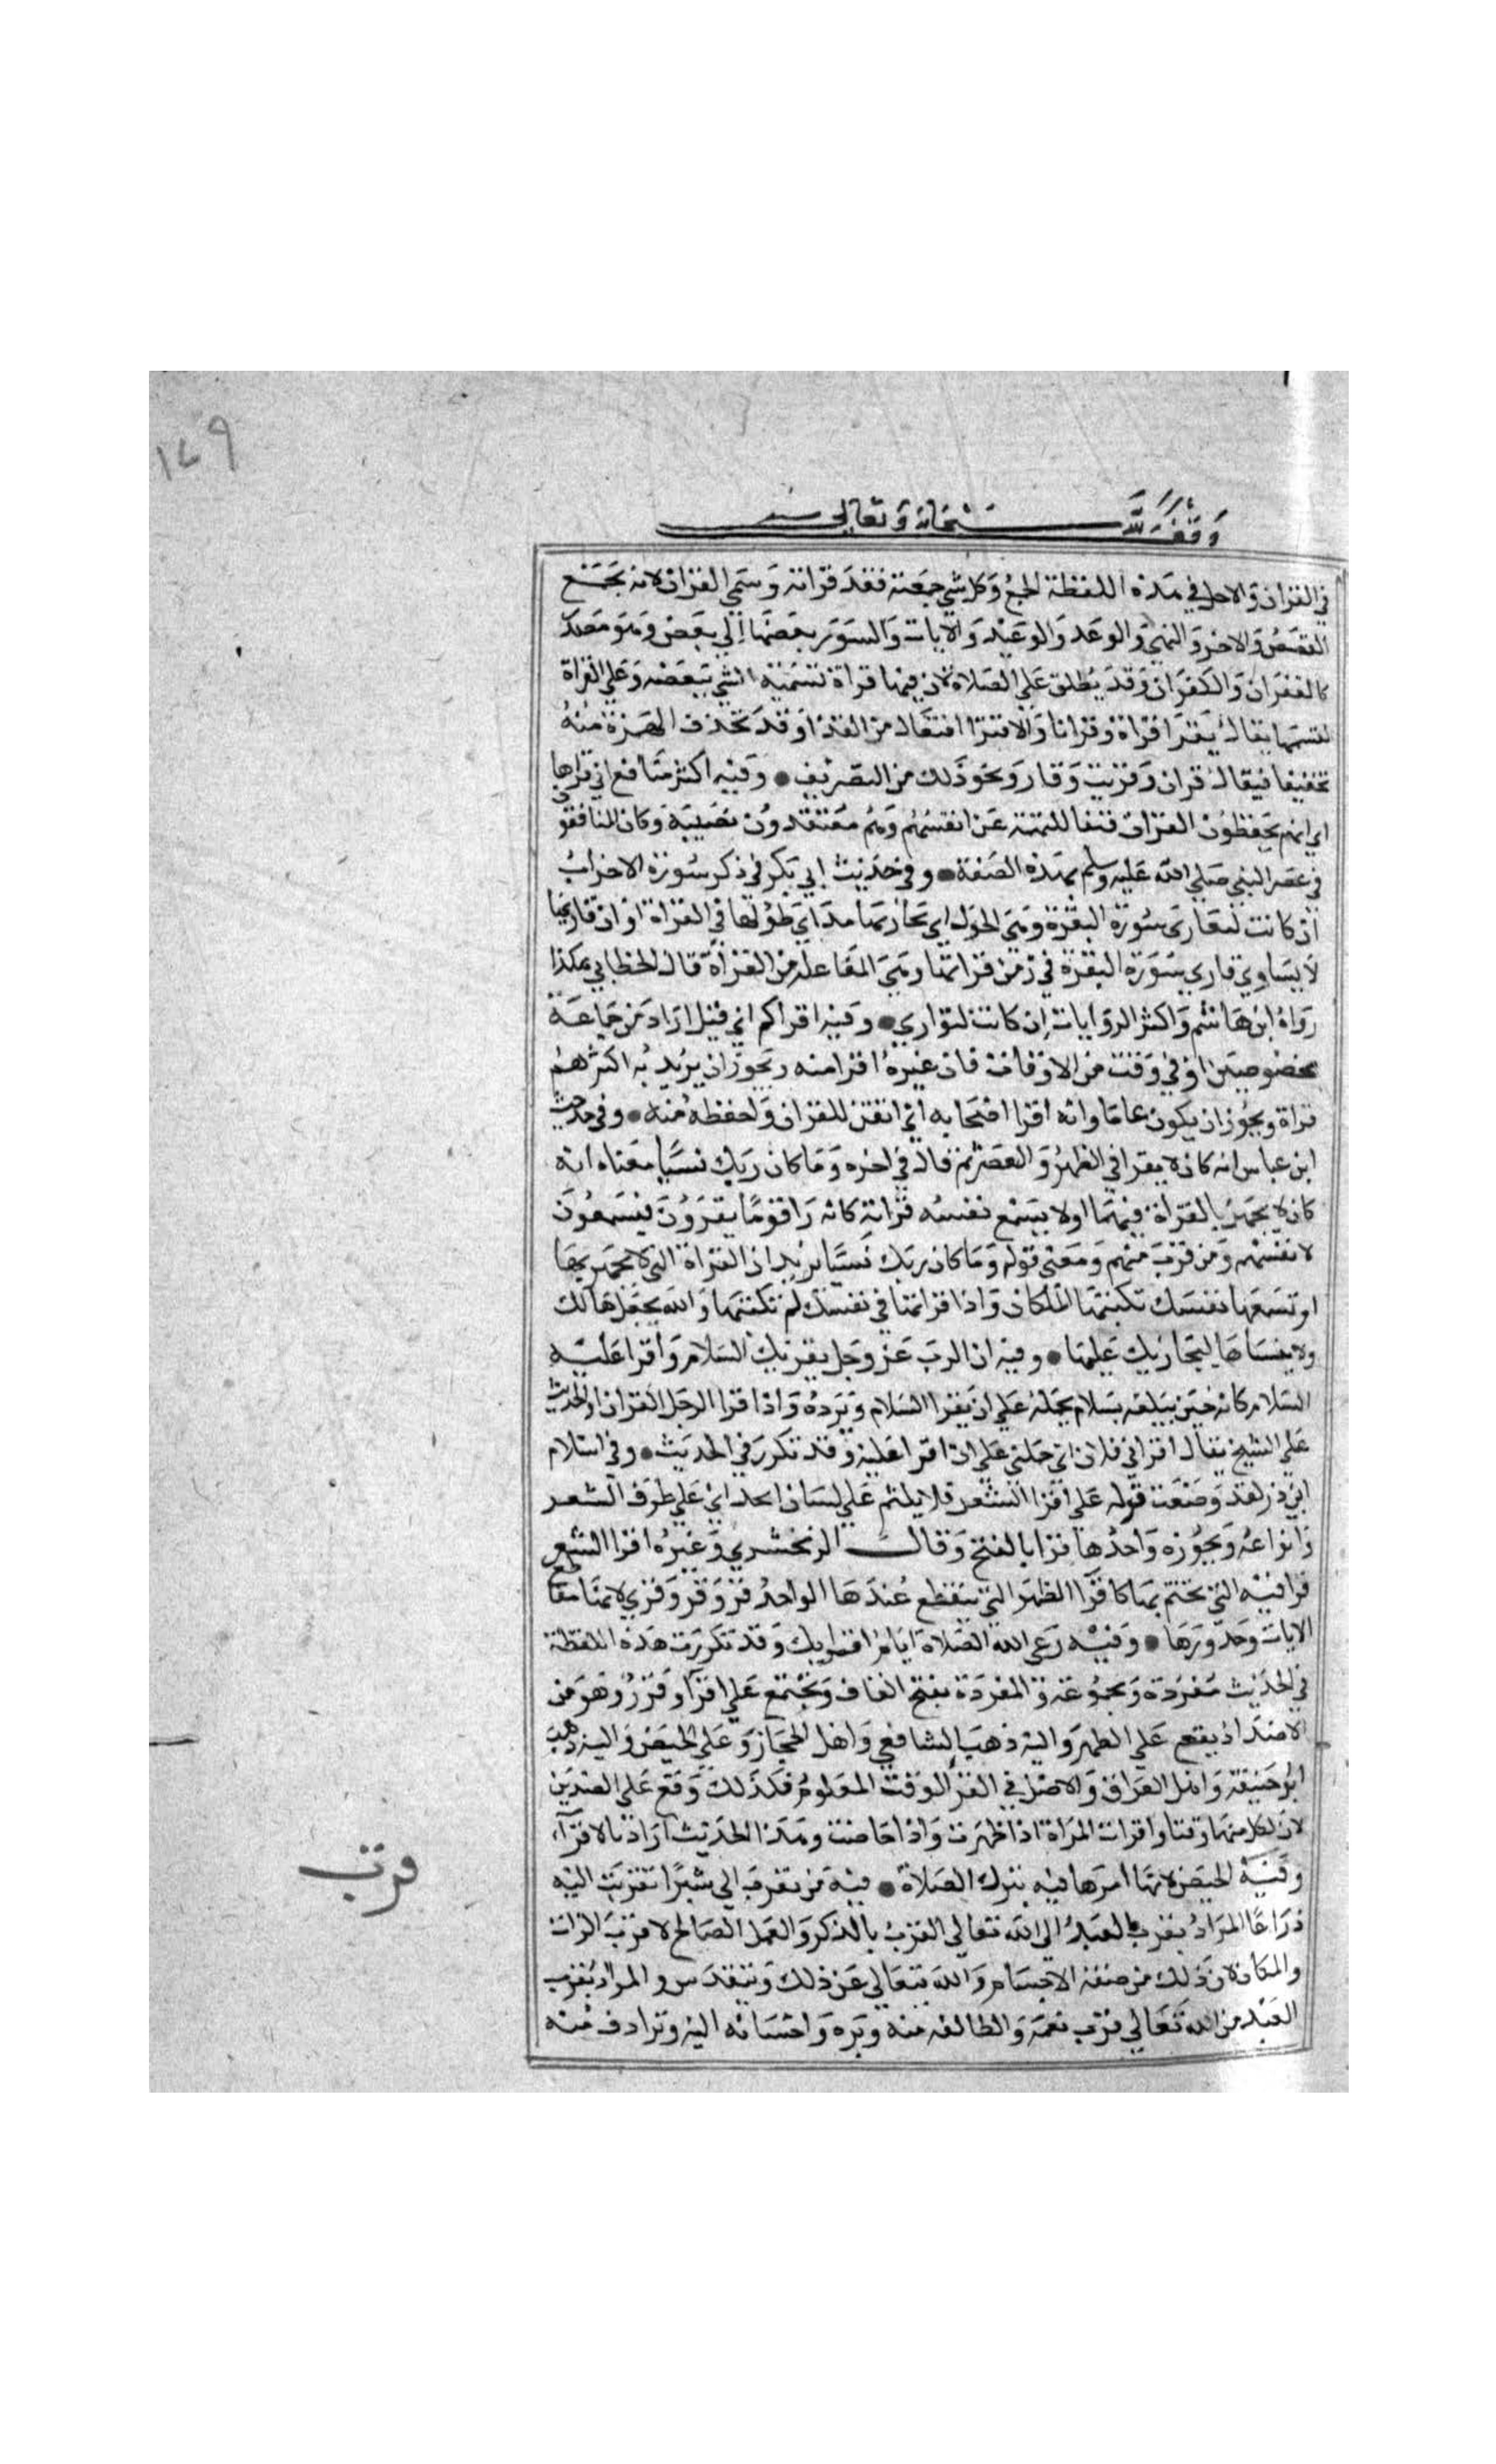 ١٤٩
وقف لله سبحانه وتعالى
في القران والاصل في هذه اللفظة الجمع وكل شي جمعته فقد قراته وسمي القران لانه يجمع
القصص والامر والنهي والوعد والوعيد والايات والسور بعضها الي بعض وهو مصدر
كالغفران والكفران وقد يطلق علي الصلاة لان فيها قراة تسمية الشي ببعضه وعلي القراة
نفسها يقال يقرا قراة وقرانا والاقترا افتعال من القراة وقد تحذف الهمزة منه
تخفيفا فيقال قران وقريت وقار ونحو ذلك من التصريف ● وفيه اكثر منافقي امتي قراوها
اي انهم يحفظون القران نفيا للتهمة عن انفسهم وهم معتقدون تضييعه وكان المنافقون
في عصر النبي صلي الله عليه وسلم بهذه الصفة ● وفي حديث ابي بكر في ذكر سورة الاحزاب
ان كانت لتقاري سورة البقرة وهي الحول اي تجاريها مدا اي طولها في القراة او ان قاريها
لا يساوي قاري سورة البقرة في زمن قراتها وهي المفاعلة من القراة قال الخطابي هكذا
رواه ابن هاشم واكثر الروايات ان كانت لتوازي ● وفيه اقراكم ابي قيل اراد من جماعة
مخصوصين او في وقت من الاوقات فان غيره اقرا منه ويجوز ان يريد به اكثرهم
قراة ويجوز ان يكون عاما وانه اقرا اصحابه اي اتقن للقران واحفظه منه ● وفي حديث
ابن عباس انه كان لا يقرا في الظهر والعصر ثم قال في اخره وما كان ربك نسيا معناه انه
كان لا يجهر بالقراة فيهما او لا يسمع نفسه قراته كانه راي قوما يقرون فيسمعون
لانفسهم ومن قرب منهم ومعني قوله وما كان ربك نسيا يريد ان القراة التي لا تجهر بها
او تسمعها نفسك تكتبها الملكان واذا قراتها في نفسك لم تكتبها والله يحفظها لك
ولا ينساها ليجازيك عليها ● وفيه ان الرب عز وجل يقريك السلام واقرا عليه
السلام كانه حين يبلغه سلامه يحمله علي ان يقرا السلام ويرده واذا قرا الرجل القران او الحديث
علي الشيخ يقال اقراني فلان اي حملني علي ان اقرا عليه وقد تكرر في الحديث ● وفي اسلام
ابي ذر لقد وضعت قوله علي اقرا الشعر فلا يلتيم علي لسان احد اي علي طرق الشعر
وانواعه وبحوره واحدها قرا بالفتح وقال الزمخشري وغيره اقرا الشعر
قوافيه التي يختم بها كاقرا الطهر التي ينقطع عندها الواحد قرو وقرو وقري لانها مقاطع
الابيات وحدودها ● وفيه دعي الصلاة ايام اقرايك وقد تكررت هذه اللفظة
في الحديث مفردة ومجموعة والمفردة بفتح القاف وتجمع علي اقرا وقرو وهو من
الاضداد يقع علي الطهر واليه ذهب الشافعي واهل الحجاز وعلي الحيض واليه ذهب
ابو حنيفة واهل العراق والاصل في القرا الوقت المعلوم فكذلك وقع علي الضدين
لان لكل منهما وقتا واقرات المراة اذا طهرت واذا حاضت وهذا الحديث اراد بالاقراء
وفيه الحيض لانها امرها فيه بترك الصلاة ● فيه من تقرب الي شبرا تقربت اليه
ذراعا المراد بقرب العبد الي الله تعالي القرب بالذكر والعمل الصالح لا قرب الذات
والمكان لان ذلك من صفة الاجسام والله يتعالي عن ذلك ويتقدس والمراد بقرب
العبد من الله تعالي قرب نعمه والطافه منه وبره واحسانه اليه وترادف مننه
قرب